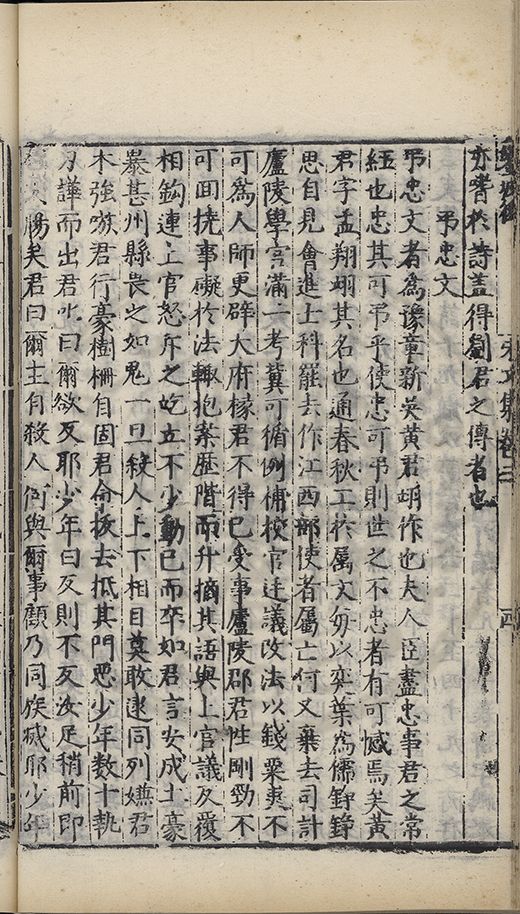 宋文集卷二
四
亦嗜於詩蓋得劉君之傳者也
弔忠文
弔忠文者為豫章新吳黃君翊作也夫人臣盡忠事君之常
經也忠其可弔乎使忠可弔則世之不忠者有可憾焉矣黃
君字孟翔翊其名也通春秋工於屬文以奕葉為儒錚錚
思自見會進士科罷去作江西部使者屬亡何又棄去司計
廬陵學宮滿一考冀可循例補校官廷議改法以錢粟夷不
可為人師更辟大府椽君不得已受事廬陵郡君性剛勁不
可回撓事礙於法輙抱案歷階而升摘其語與上官議反覆
相鈎連上官怒斥之屹立不少動已而卒如君言安成土豪
暴甚州縣畏之如鬼一旦殺人上下相目莫敢逮同列嫌君
木強嗾君行豪樹柵自固君命拔去抵其門惡少年數十執
刀譁而出君叱曰爾欲反耶少年曰反則不反汝足稍前即
膓矣君曰爾主自殺人何與爾事顧乃同族滅耶少年